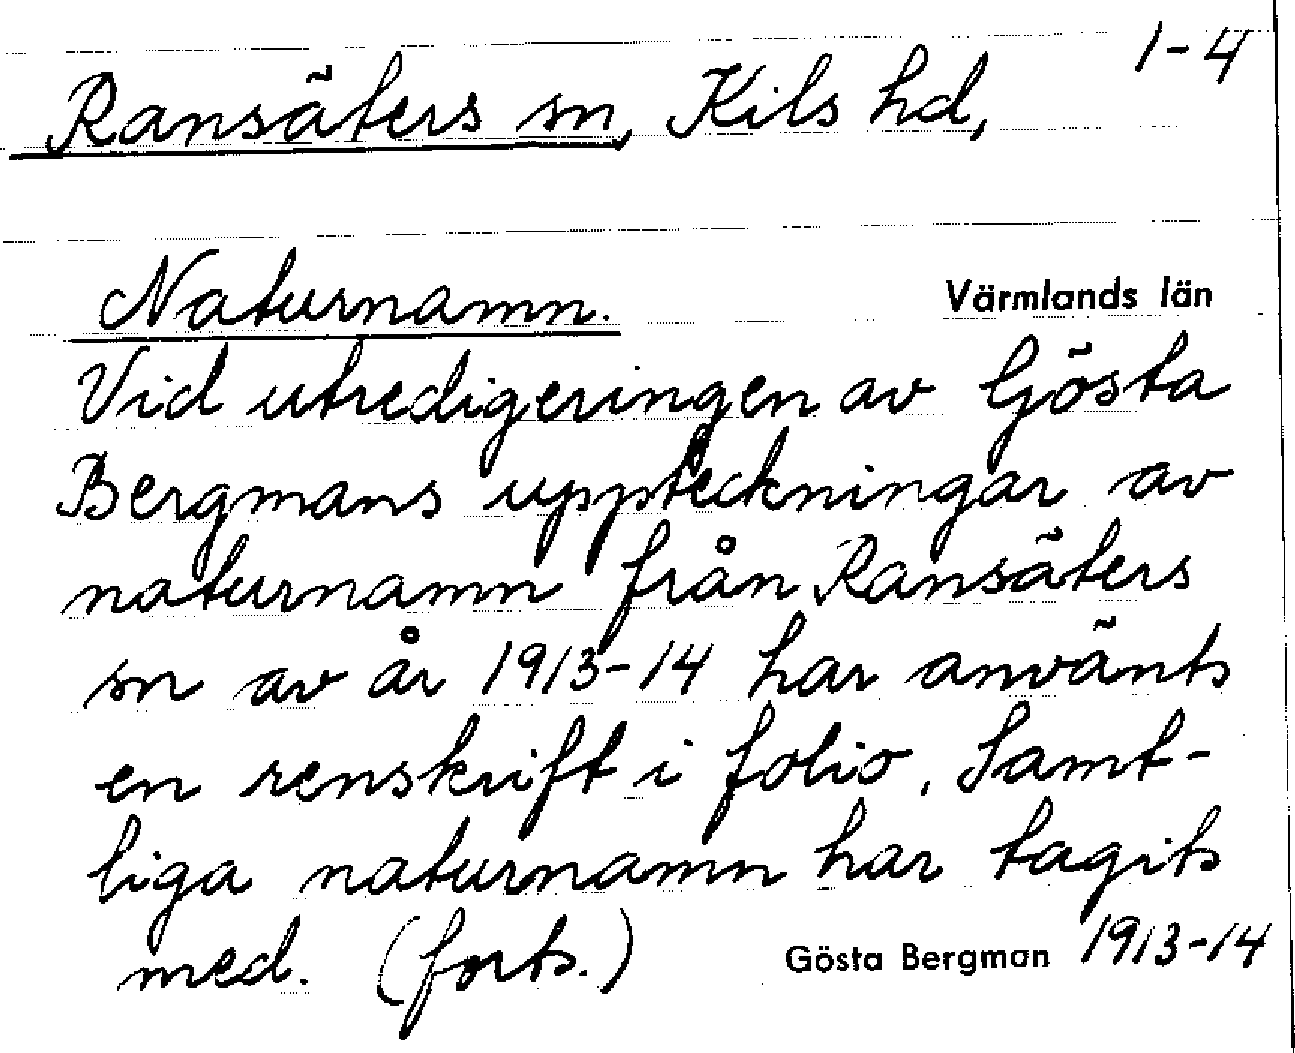 1-4
Ransäters sn, Kils hd,
Naturnamn.
Värmlands län
Vid utredigeringen av Gösta
Bergmans uppteckningar av
naturnamn från Ransäters
sn av år 1913-14 har använts
en renskrift i folio. Samt-
liga naturnamn har tagits
med. (forts.)
Gösta Bergman 1913-14